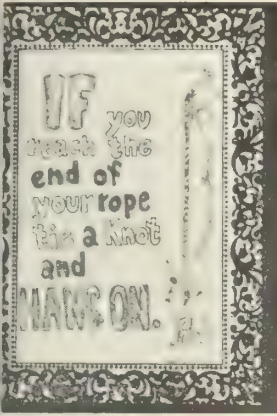 IF you
reach the
end of
your rope
tie a knot
and
HANG ON.